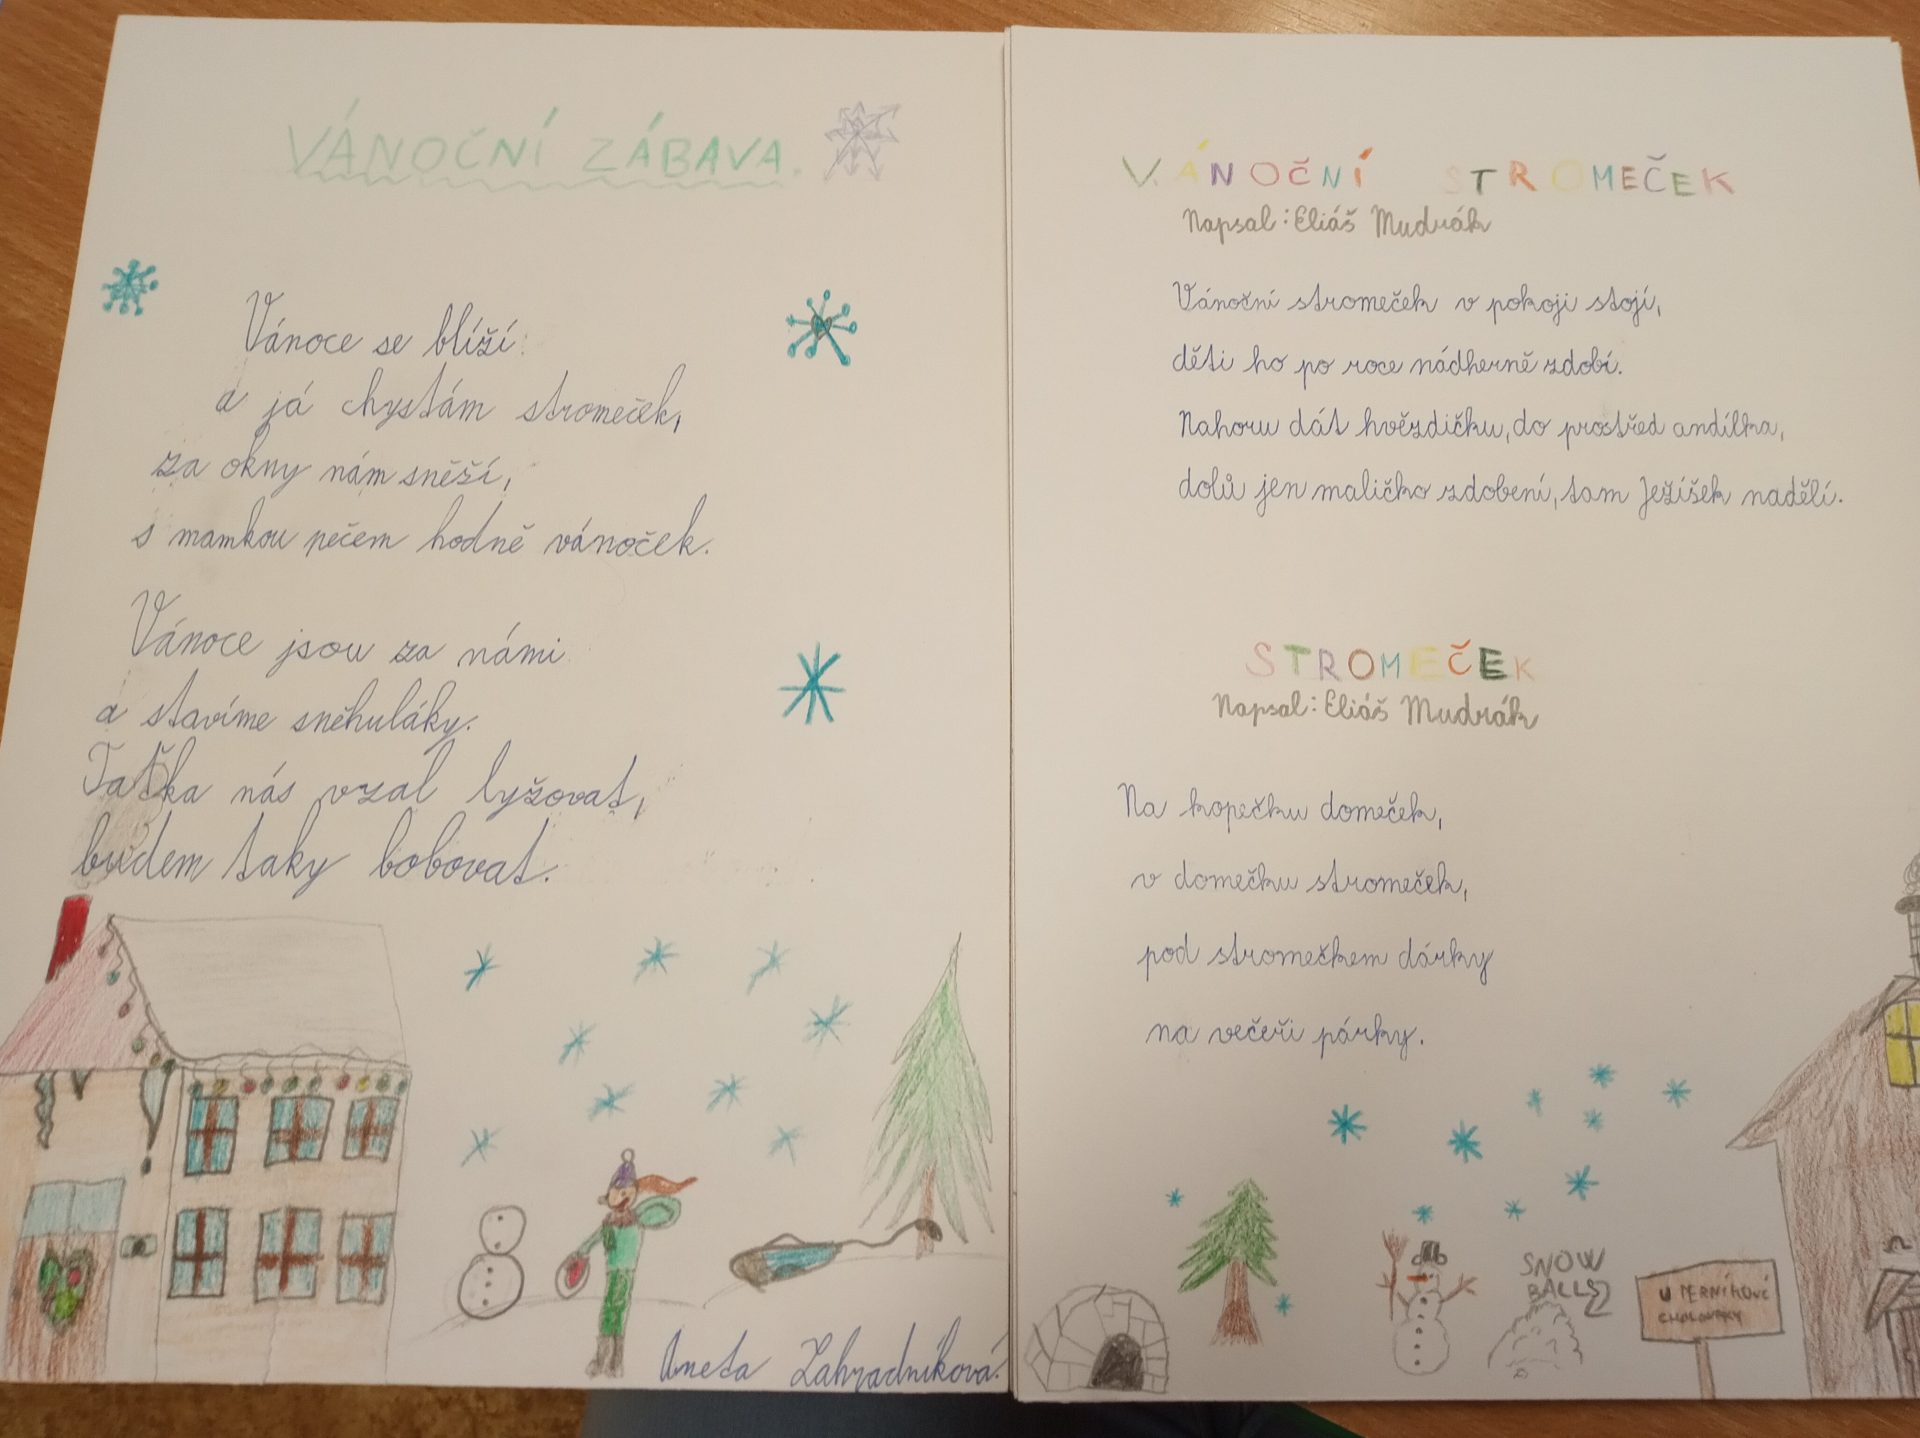 VÁNOČNÍ ZÁBAVA.
Vánoce se blíží
a já chystám stromeček,
za okny nám sněží,
s mamkou pečem hodně vánoček.
Vánoce jsou za námi
a stavíme sněhuláky.
Taťka nás vzal lyžovat,
budem taky bobovat.
Aneta Zahradníková.
VÁNOČNÍ STROMEČEK
Napsal: Eliáš Mudrák
Vánoční stromeček v pokoji stojí,
děti ho po roce nádherně zdobí.
Nahoru dát hvězdičku, do prostřed andílka,
dolů jen maličko zdobení, tam Ježíšek nadělí.
STROMEČEK
Napsal: Eliáš Mudrák
Na kopečku domeček,
v domečku stromeček,
pod stromečkem dárky
na večeři párky.
SNOW
BALLS
U PERNÍKOVÉ